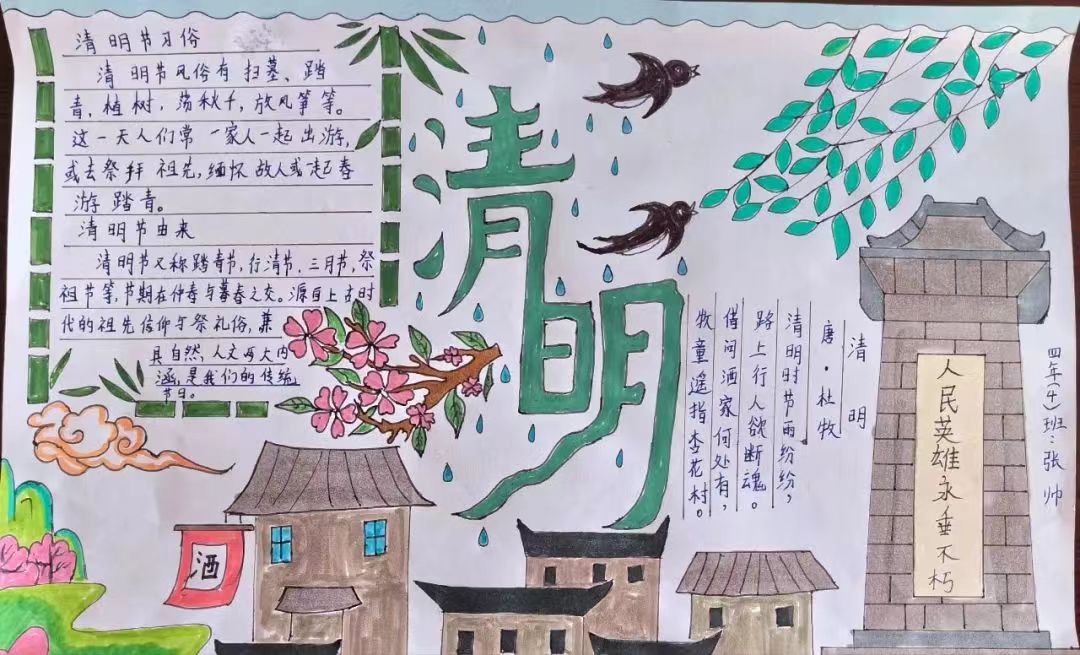 清明节习俗
清明节风俗有扫墓、踏
青,植树,荡秋千,放风筝等。
这一天人们常一家人一起出游,
或去祭拜祖先,缅怀故人或一起春
游踏青。
清明节由来
清明节又称踏青节,行清节,三月节,祭
祖节等,节期在仲春与暮春之交。源自上古时
代的祖先信仰与祭礼俗,兼
具自然、人文两大内
涵,是我们的传统
节日。
清明
清明
唐·杜牧
清明时节雨纷纷,
路上行人欲断魂。
借问酒家何处有,
牧童遥指杏花村。
人民英雄永垂不朽
四年(4)班:张帅
酒